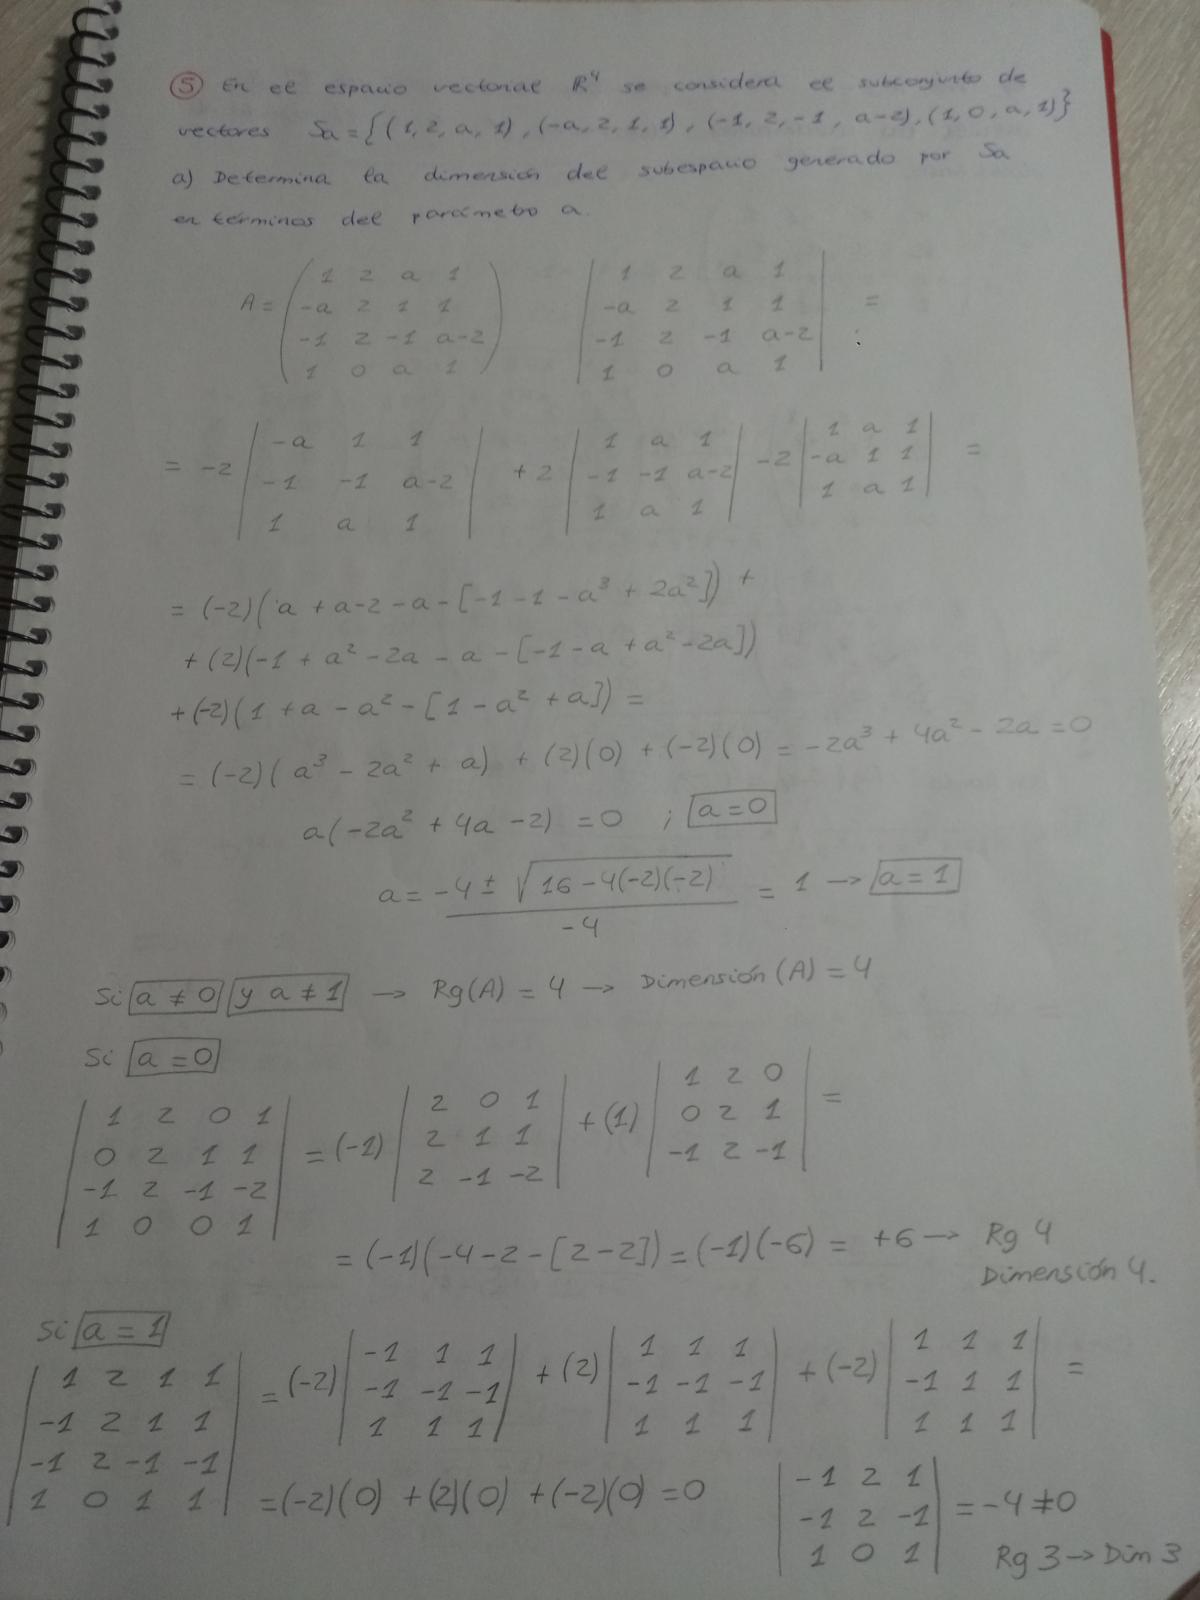 ⑤ En el espacio vectorial ℝ⁴ se considera el subconjunto de
vectores Sa = {(1, 2, a, 1), (-a, 2, 1, 1), (-1, 2, -1, a-2), (1, 0, a, 1)}
a) Determina la dimensión del subespacio generado por Sa
en términos del parámetro a.
A = ( 1 2 a 1 ) | 1 2 a 1 |
( -a 2 1 1 ) | -a 2 1 1 | =
( -1 2 -1 a-2 ) | -1 2 -1 a-2 |
( 1 0 a 1 ) | 1 0 a 1 |
| -a 1 1 | | 1 a 1 | | 1 a 1 |
= -2 | -1 -1 a-2 | + 2 | -1 -1 a-2 | -2 | -a 1 1 | =
| 1 a 1 | | 1 a 1 | | 1 a 1 |
= (-2)(a + a-2 - a - [-1 - 1 - a³ + 2a²]) +
+ (2)(-1 + a² - 2a - a - [-1 - a + a² - 2a])
+ (-2)(1 + a - a² - [1 - a² + a]) =
= (-2)(a³ - 2a² + a) + (2)(0) + (-2)(0) = -2a³ + 4a² - 2a = 0
a(-2a² + 4a - 2) = 0 ; a = 0
a = -4 ± √16 - 4(-2)(-2) = 1 → a = 1
-4
Si a ≠ 0 y a ≠ 1 → Rg(A) = 4 → Dimensión (A) = 4
Si a = 0
| 1 2 0 1 | | 2 0 1 | | 1 2 0 |
| 0 2 1 1 | = (-1) | 2 1 1 | + (1) | 0 2 1 | =
| -1 2 -1 -2 | | 2 -1 -2 | | -1 2 -1 |
| 1 0 0 1 |
= (-1)(-4 - 2 - [2 - 2]) = (-1)(-6) = +6 → Rg 4
Dimensión 4.
Si a = 1
| 1 2 1 1 | | -1 1 1 | | 1 1 1 | | 1 1 1 |
| -1 2 1 1 | = (-2) | -1 -1 -1 | + (2) | -1 -1 -1 | + (-2) | -1 1 1 | =
| -1 2 -1 -1 | | 1 1 1 | | 1 1 1 | | 1 1 1 |
| 1 0 1 1 | = (-2)(0) + (2)(0) + (-2)(0) = 0
| -1 2 1 |
| -1 2 -1 | = -4 ≠ 0
| 1 0 1 | Rg 3 → Dim 3